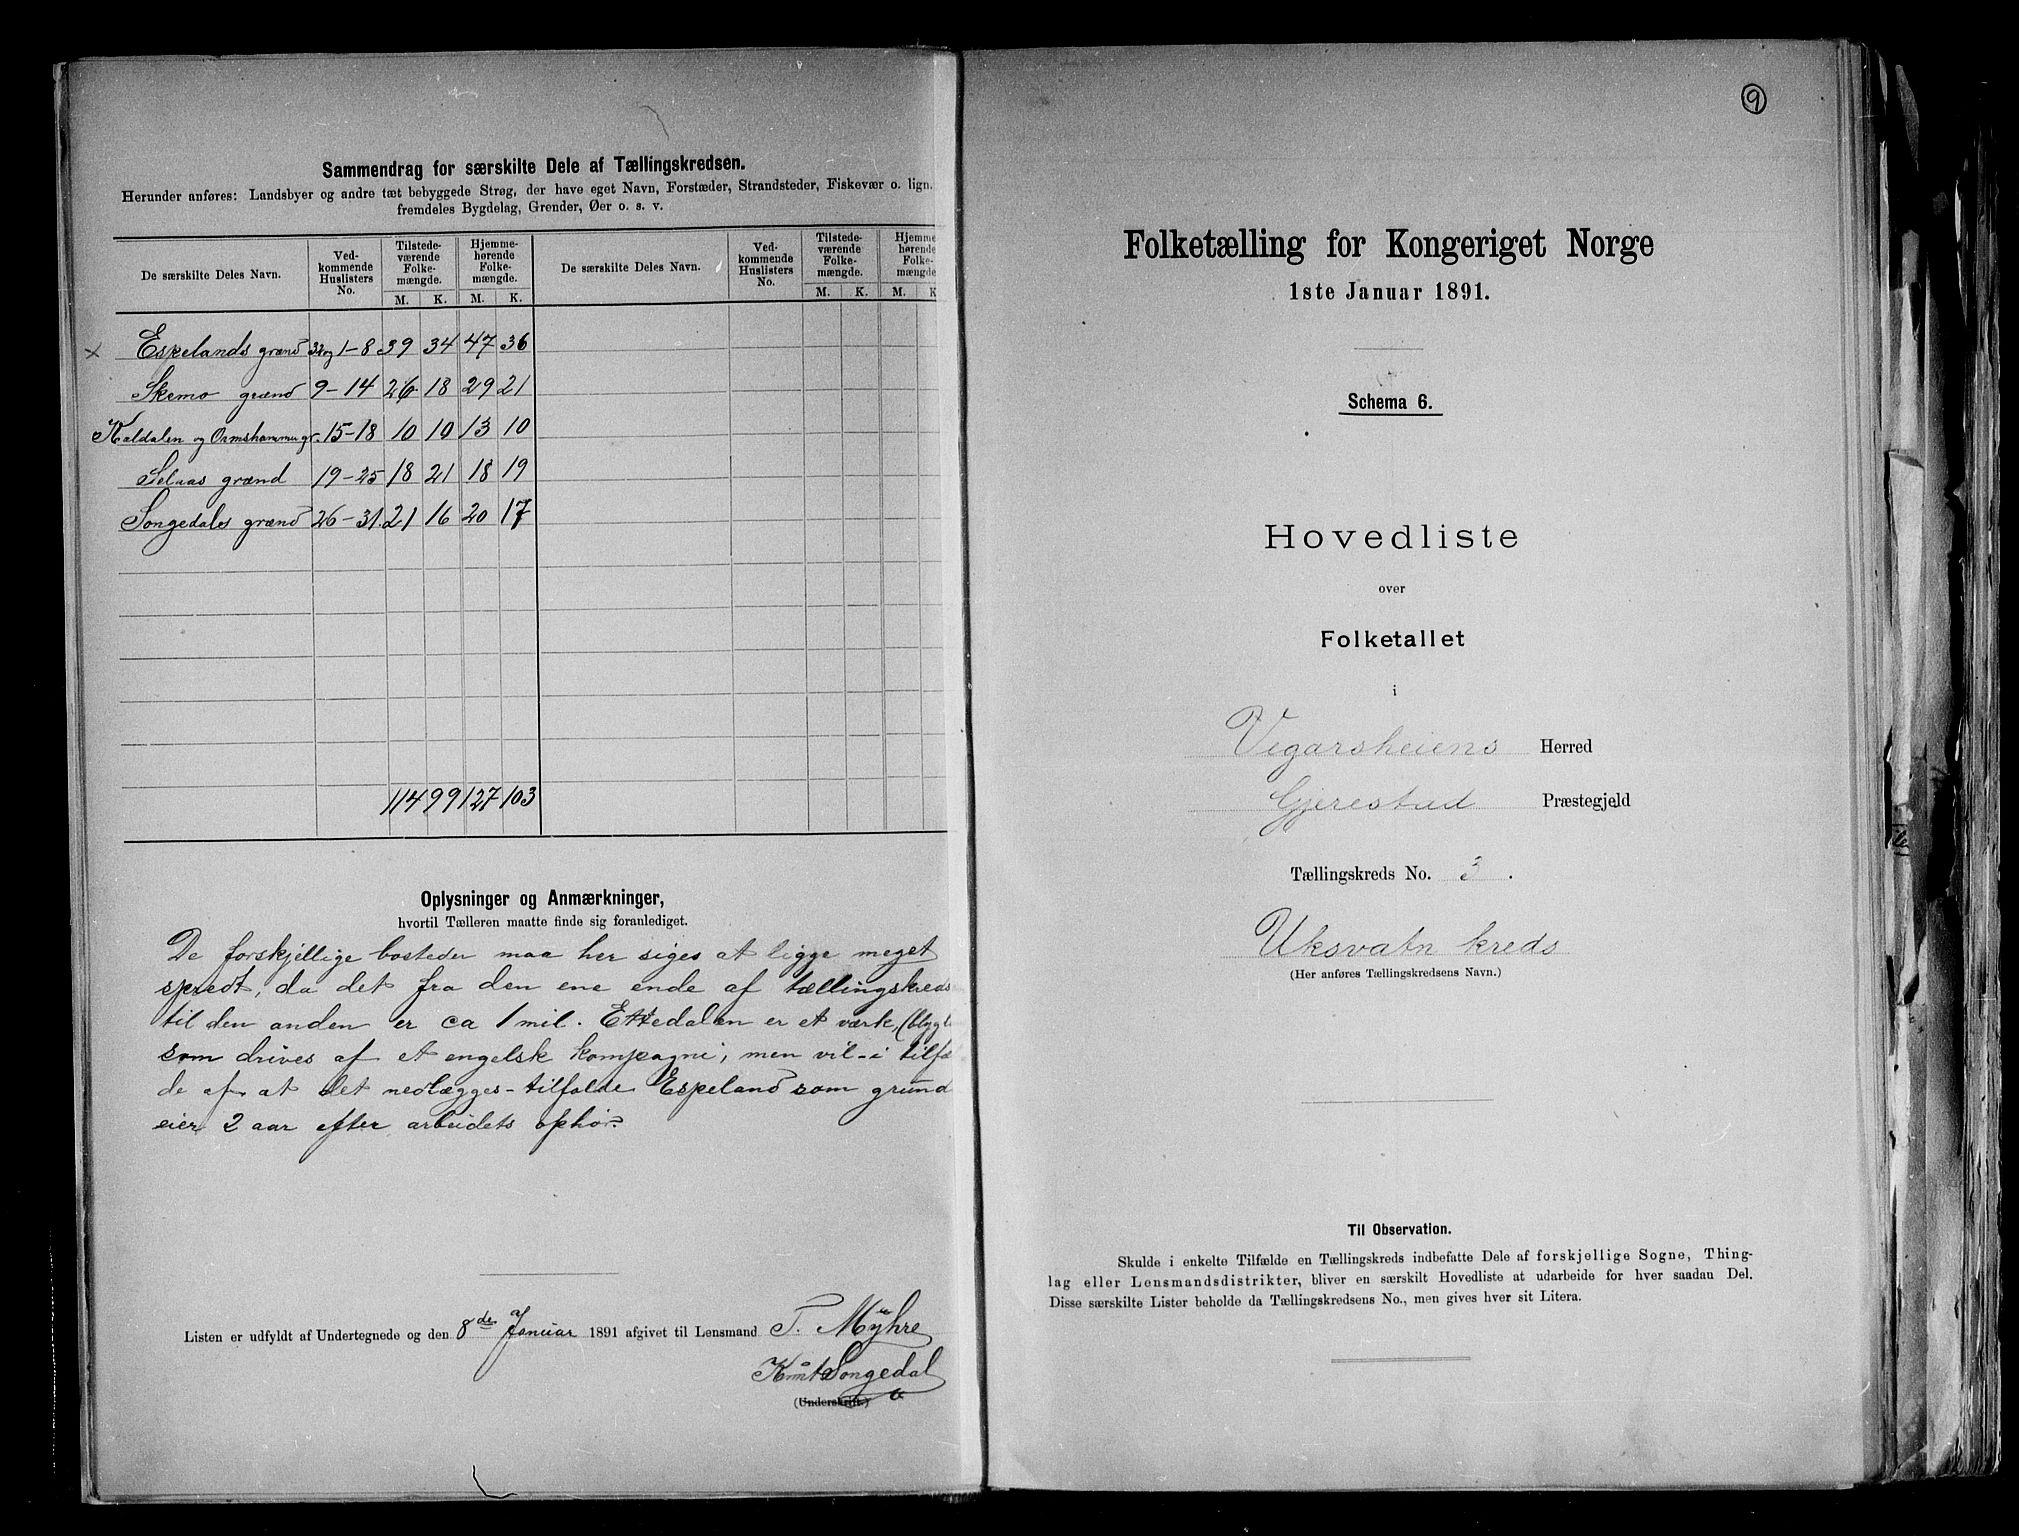 Sammendrag for særskilte Dele af Tællingskredsen.
Herunder anføres: Landsbyer og andre tæt bebyggede Strøg, der have eget Navn, Forstæder, Strandsteder, Fiskevær o. lign.
fremdeles Bygdelag, Grender, Øer o. s. v.
De særskilte Deles Navn. Ved-kommende Huslisters No. Tilstede-værende Folke-mængde. Hjemme-hørende Folke-mængde. De særskilte Deles Navn. Ved-kommende Huslisters No. Tilstede-værende Folke-mængde. Hjemme-hørende Folke-mængde.
M. K. M. K. M. K. M. K
Espelands grænd 32 og 1-8 39 34 47 36
Skemo grænd 9-14 26 18 29 21
Kaldalen og Ormshammer gr. 15-18 10 10 13 10
Selaas grænd 19-25 18 21 18 19
Songedales grænd 26-31. 21 16 20 17
114 99 127 103
Oplysninger og Anmærkninger,
hvortil Tælleren maatte finde sig foranlediget.
De forskjellige bosteder maa her siges at ligge meget
spredt, da det fra den ene ende af tællingskreds
til den anden er ca 1 mil. Ettedalen er et værk,
som drives af et engelsk kompagni, men vil-i tilfæl
de af at det nedlægges-tilfalde Espeland som grund
eier 2 aar efter arbeidets ophør.
Listen er udfyldt af Undertegnede og den 8de Januar 1891 afgivet til Lensmand T. Myhre
Knut Songedal
(Underskrift.)
9
Folketælling for Kongeriget Norge
1ste Januar 1891.
Schema 6.
Hovedliste
over
Folketallet
i
Vegarsheiens Herred
Gjerestad Præstegjeld
Tællingskreds No. 3.
Uksvatn kreds
(Her anføres Tællingskredsens Navn.)
Til Observation.
Skulde i enkelte Tilfælde en Tællingskreds indbefatte Dele af forskjellige Sogne, Thing-
lag eller Lensmandsdistrikter, bliver en særskilt Hovedliste at udarbeide for hver saadan Del.
Disse særskilte Lister beholde da Tællingskredsens No., men gives hver sit Litera.